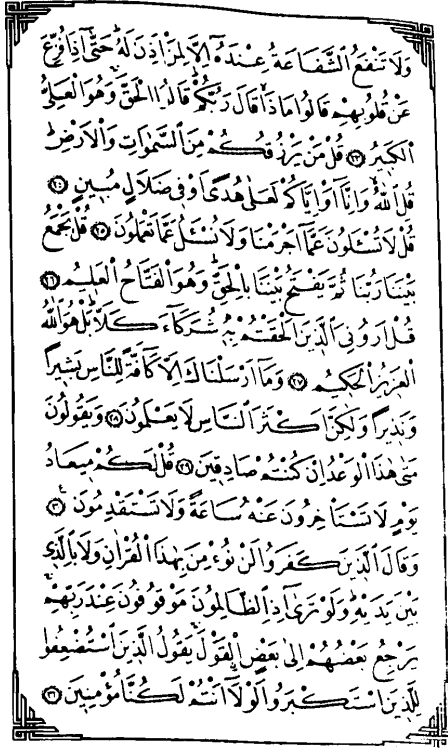 وَلَا تَنْفَعُ الشَّفَاعَةُ عِنْدَهُٓ اِلَّا لِمَنْ اَذِنَ لَهُ حَتّٰٓى اِذَا فُزِّعَ
عَنْ قُلُوبِهِمْ قَالُوا مَاذَا قَالَ رَبُّكُمْ قَالُوا الْحَقَّ وَهُوَ الْعَلِيُّ
الْكَبِيرُ ﴿٢٣﴾ قُلْ مَنْ يَرْزُقُكُمْ مِنَ السَّمٰوَاتِ وَالْاَرْضِ
قُلِ اللّٰهُ وَاِنَّٓا اَوْ اِيَّاكُمْ لَعَلٰى هُدًى اَوْ فِى ضَلَالٍ مُبِينٍ ﴿٢٤﴾
قُلْ لَا تُسْـَٔلُونَ عَمَّٓا اَجْرَمْنَا وَلَا نُسْـَٔلُ عَمَّا تَعْمَلُونَ ﴿٢٥﴾ قُلْ يَجْمَعُ
بَيْنَنَا رَبُّنَا ثُمَّ يَفْتَحُ بَيْنَنَا بِالْحَقِّ وَهُوَ الْفَتَّاحُ الْعَلِيمُ ﴿٢٦﴾
قُلْ اَرُونِىَ الَّذِينَ اَلْحَقْتُمْ بِهِ شُرَكَٓاءَ كَلَّا بَلْ هُوَ اللّٰهُ
الْعَزِيزُ الْحَكِيمُ ﴿٢٧﴾ وَمَٓا اَرْسَلْنَاكَ اِلَّا كَٓافَّةً لِلنَّاسِ بَشِيرًا
وَنَذِيرًا وَلٰكِنَّ اَكْثَرَ النَّاسِ لَا يَعْلَمُونَ ﴿٢٨﴾ وَيَقُولُونَ
مَتٰى هٰذَا الْوَعْدُ اِنْ كُنْتُمْ صَادِقِينَ ﴿٢٩﴾ قُلْ لَكُمْ مِيعَادُ
يَوْمٍ لَا تَسْتَاْخِرُونَ عَنْهُ سَاعَةً وَلَا تَسْتَقْدِمُونَ ﴿٣٠﴾
وَقَالَ الَّذِينَ كَفَرُوا لَنْ نُؤْمِنَ بِهٰذَا الْقُرْاٰنِ وَلَا بِالَّذِى
بَيْنَ يَدَيْهِ وَلَوْ تَرٰٓى اِذِ الظَّالِمُونَ مَوْقُوفُونَ عِنْدَ رَبِّهِمْ
يَرْجِعُ بَعْضُهُمْ اِلٰى بَعْضٍ الْقَوْلَ يَقُولُ الَّذِينَ اسْتُضْعِفُوا
لِلَّذِينَ اسْتَكْبَرُوا لَوْلَٓا اَنْتُمْ لَكُنَّا مُؤْمِنِينَ ﴿٣١﴾